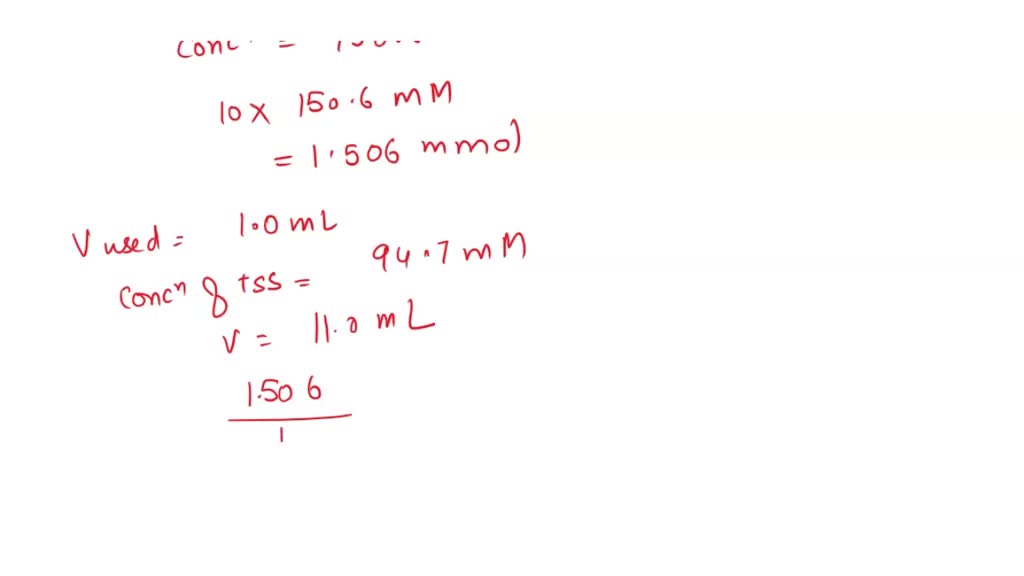 conc =
10 x 150.6 mM
= 1.506 mmol
V used = 1.0 mL
Concn of tss = 94.7 mM
V = 11.0 mL
1.506
1